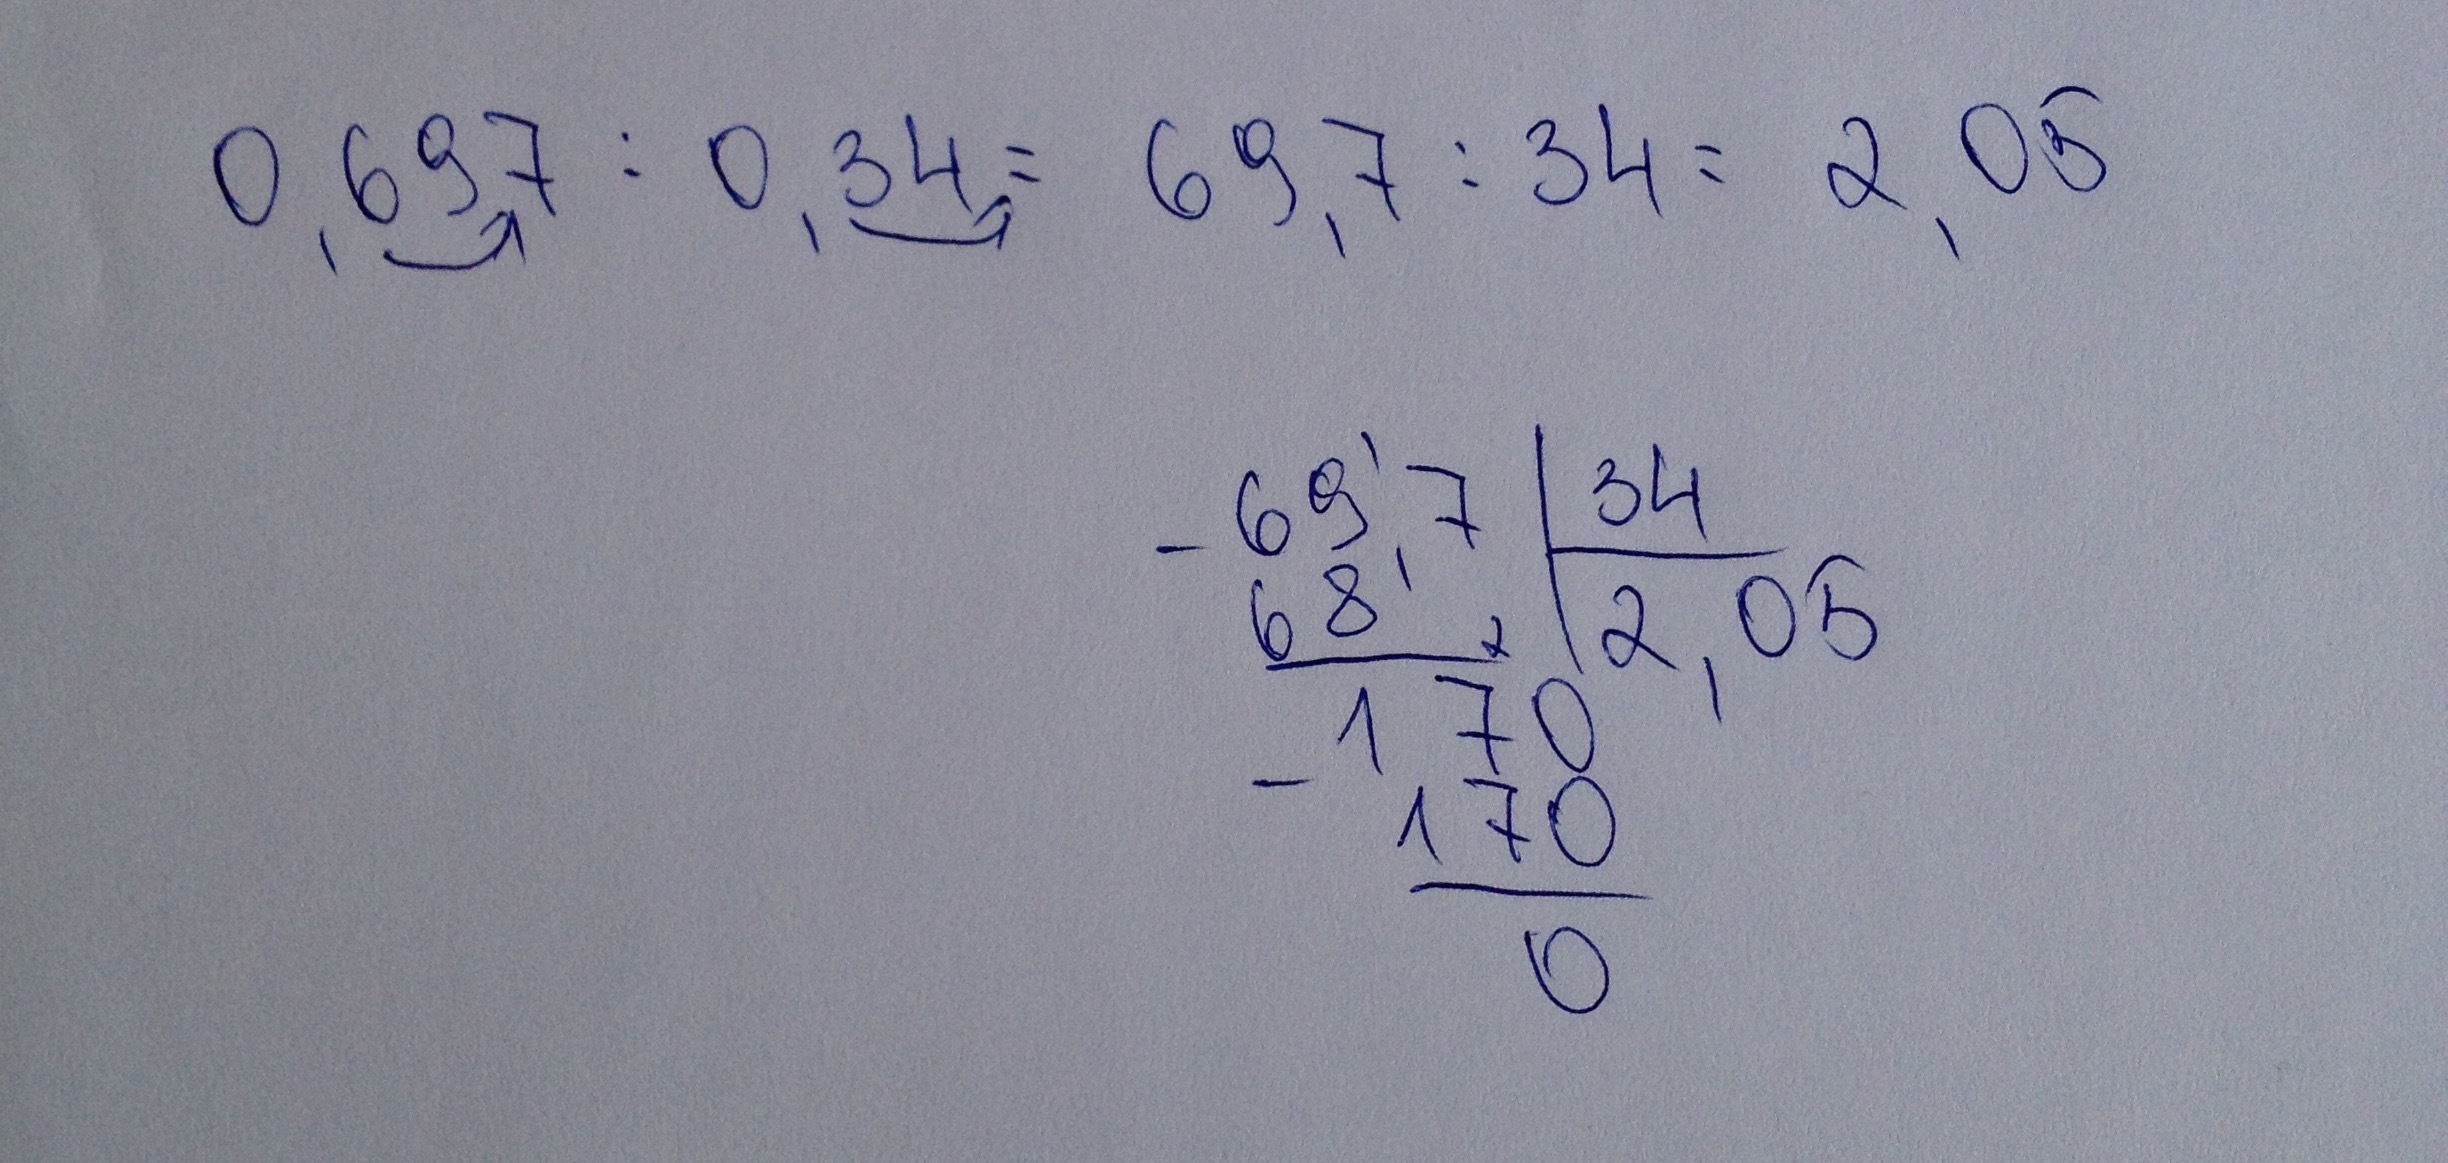 0,697 : 0,34 = 69,7 : 34 = 2,05
- 69,7 | 34
68 | 2,05
- 170
170
0